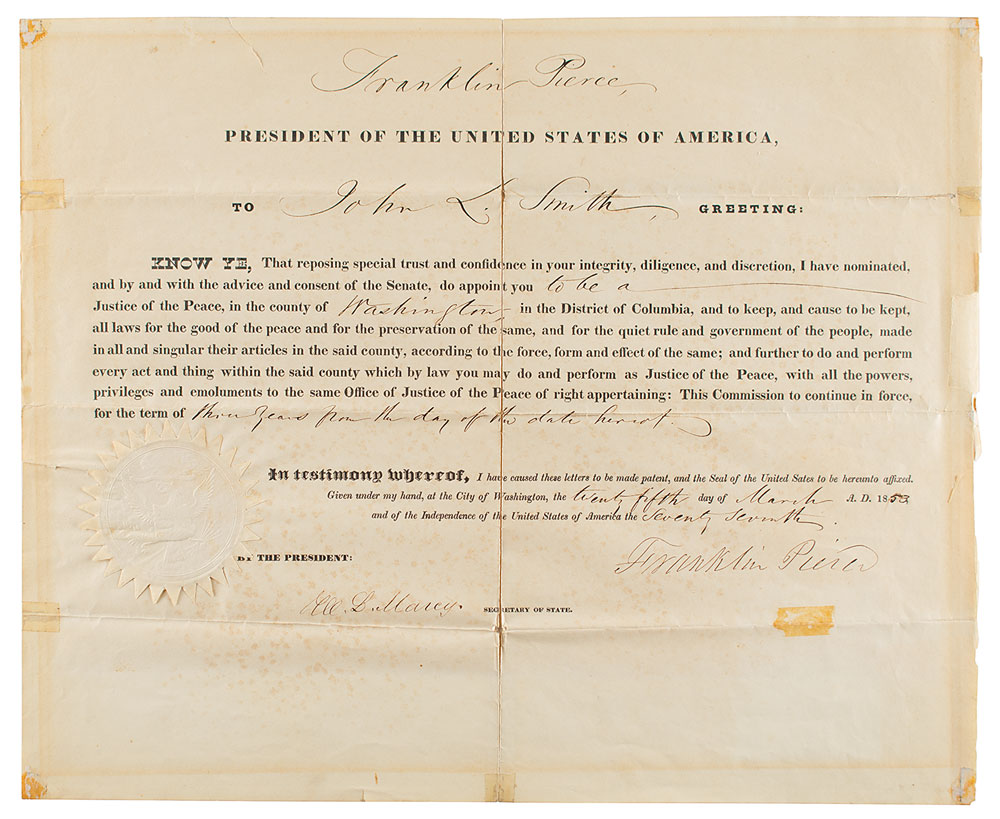 Franklin Pierce,
PRESIDENT OF THE UNITED STATES OF AMERICA,
TO John L. Smith, GREETING:
KNOW YE, That reposing special trust and confidence in your integrity, diligence, and discretion, I have nominated,
and by and with the advice and consent of the Senate, do appoint you to be a
Justice of the Peace, in the county of Washington, in the District of Columbia, and to keep, and cause to be kept,
all laws for the good of the peace and for the preservation of the same, and for the quiet rule and government of the people, made
in all and singular their articles in the said county, according to the force, form and effect of the same; and further to do and perform
every act and thing within the said county which by law you may do and perform as Justice of the Peace, with all the powers,
privileges and emoluments to the same Office of Justice of the Peace of right appertaining: This Commission to continue in force,
for the term of three years from the day of the date hereof.
In testimony whereof, I have caused these letters to be made patent, and the Seal of the United States to be hereunto affixed.
Given under my hand, at the City of Washington, the twenty fifth day of March A. D. 1853
and of the Independence of the United States of America the Seventy Seventh.
Franklin Pierce
BY THE PRESIDENT:
W. L. Marcy. SECRETARY OF STATE.